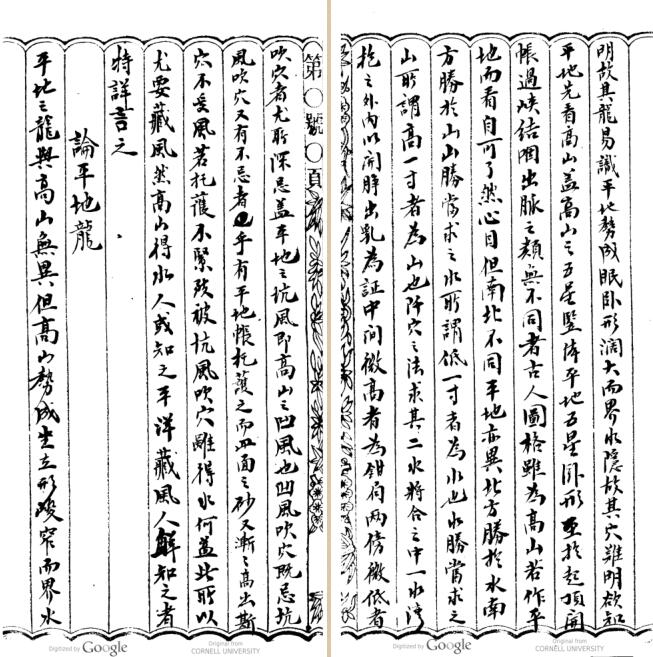 第〇號〇頁
吹穴者尤所深忌蓋平地之坑風即高山之凹風也凹風吹穴既忌坑
風吹穴又有不忌者乎有平地帳托護之而四面之砂又漸〻高出斯
穴不受風若托護不緊殘被坑風吹穴雖得水何益此所以
尤要藏風然高山得水人或知之平洋藏風人鮮知之者
特詳言之
論平地龍
平地之龍與高山無異但高山勢成生立形峻窄而界水
明故其龍易識平地勢成眠卧形濶大而界水隱故其穴難明欲知
平地先看高山蓋高山之五星豎体平地五星卧形至於起頂開
帳過峽結咽出脈之類無不同者古人圖格雖為高山若作平
地而看自可了然心目但南北不同平地亦異北方勝於水南
方勝於山山勝當求之水所謂低一寸者為水也水勝當求之
山所謂高一寸者為山也阡穴之法求其二水將合之中一水灣
抱之外內以開睜出乳為証中间微高者為鉗局兩傍微低者
Digitized by Google
Original from
CORNELL UNIVERSITY
Digitized by Google
Original from
CORNELL UNIVERSITY